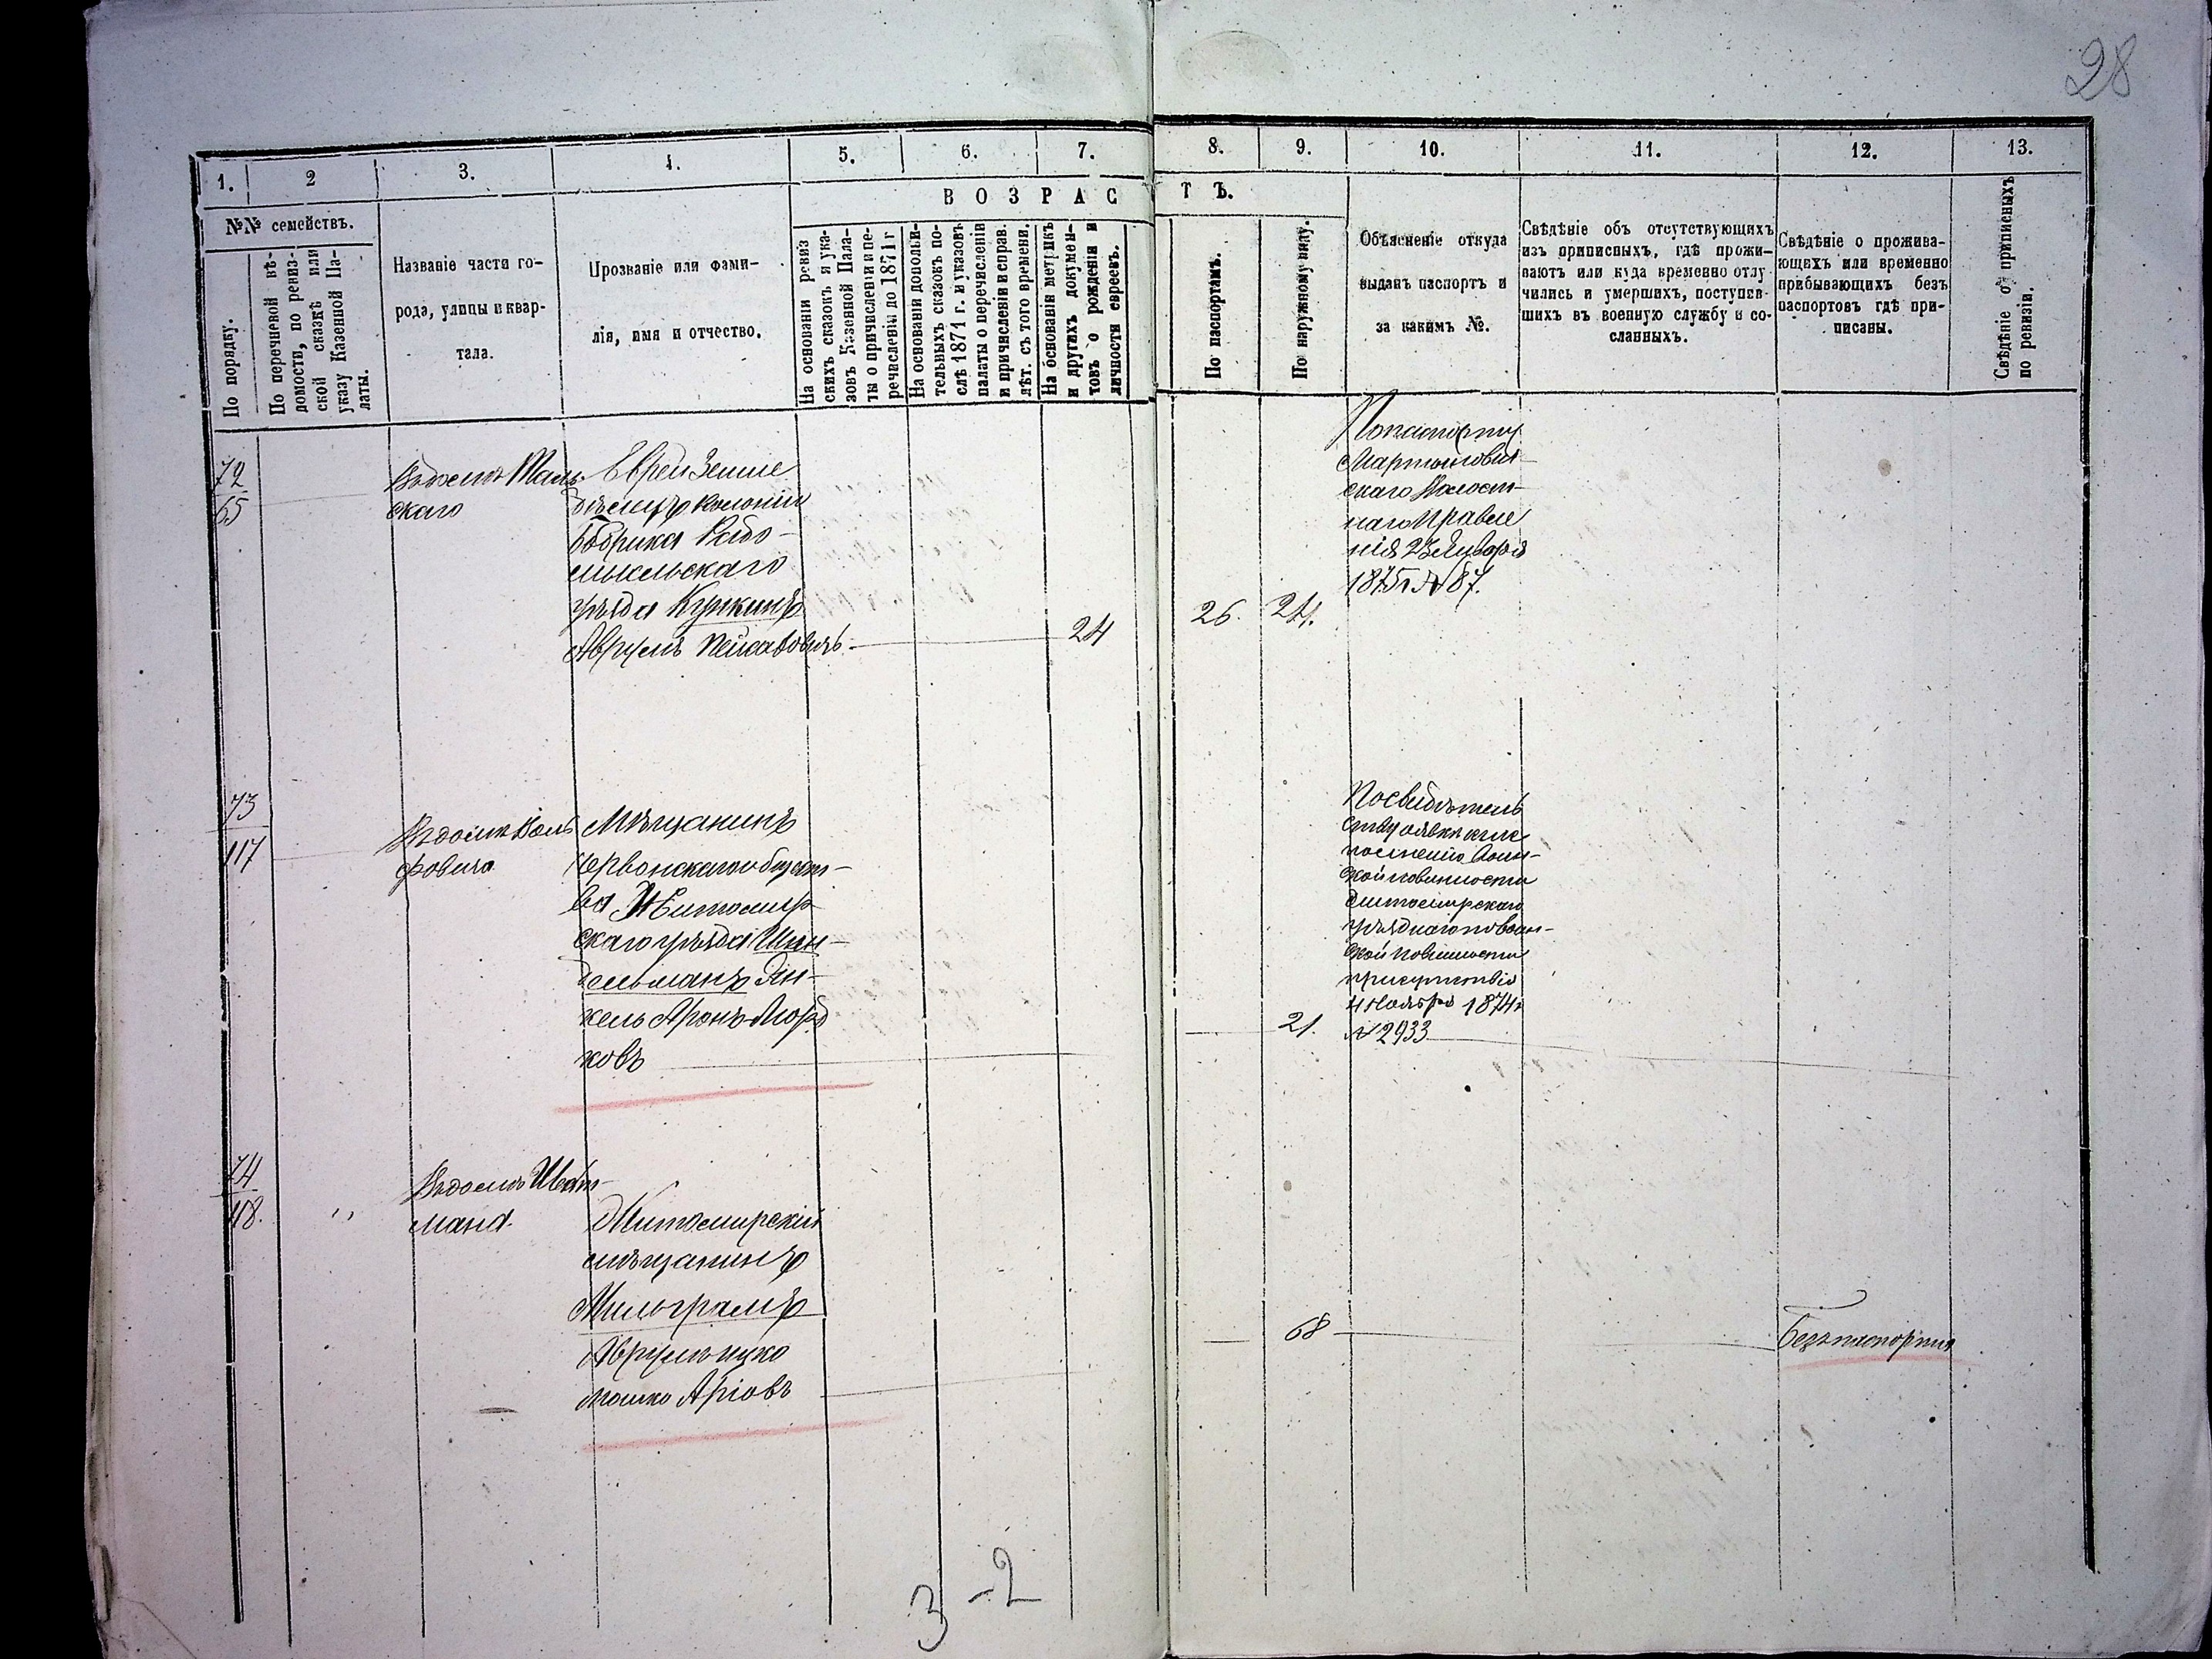 28
1.
2
3.
4.
5.
6.
7.
8.
9.
10.
11.
12.
13.
№№ семействъ.
По порядку.
По перечневой вѣ-
домости, по ревиз-
ской сказкѣ или
указу Казенной Па-
латы.
Названіе части го-
рода, улицы и квар-
тала.
Прозваніе или фами-
лія, имя и отчество.
ВОЗРАС
ТЪ.
На основаніи ревиз
скихъ сказокъ и ука-
зовъ Казенной Пала-
ты о причисленіи и пе-
речисленіи до 1871 г
На основаніи дополни-
тельныхъ сказокъ по-
слѣ 1871 г. и указовъ
палаты о перечисленіи
и причисленіи и справ.
лѣт. съ того времени.
На основаніи метрикъ
и другихъ докумен-
товъ о рожденіи и
личности евреевъ.
По паспортамъ.
По наружному виду.
Объясненіе откуда
выданъ паспортъ и
за какимъ №.
Свѣдѣніе объ отсутствующихъ
изъ приписныхъ, гдѣ прожи-
ваютъ или куда временно отлу-
чились и умершихъ, поступив-
шихъ въ военную службу и со-
сланныхъ.
Свѣдѣніе о прожива-
ющихъ или временно
прибывающихъ безъ
паспортовъ гдѣ при-
писаны.
Свѣдѣніе о приписныхъ
по ревизіи.
72
65
скаго
Еврей Земле
дѣлецъ колоніи
Бобрика Радо-
мысльскаго
уѣзда Куркинъ
Аврумъ
24
26.
24.
По паспорту
скаго Волост-
наго Правле
нія 23 Января
1875 г № 87.
73
117
Въ домѣ Воль
фовича
Мѣщанинъ
Червонскаго общест-
ва Житомир
скаго уѣзда Шин-
дельманъ Ян-
кель Аронъ Морд
ковъ
21.
По свидѣтель
ству о явкѣ к ис
полненію Воин-
ской повинности
Житомирскаго
уѣзднаго по воин-
ской повинности
присутствія
4 Ноября 1874 г
№ 2933
74
118.
Въ домѣ Шват-
мана
Житомирскій
мѣщанинъ
Мильграмъ
Аврумъ Ицко
Мошко Аріовъ
68
Безъ паспорта
3 - 2